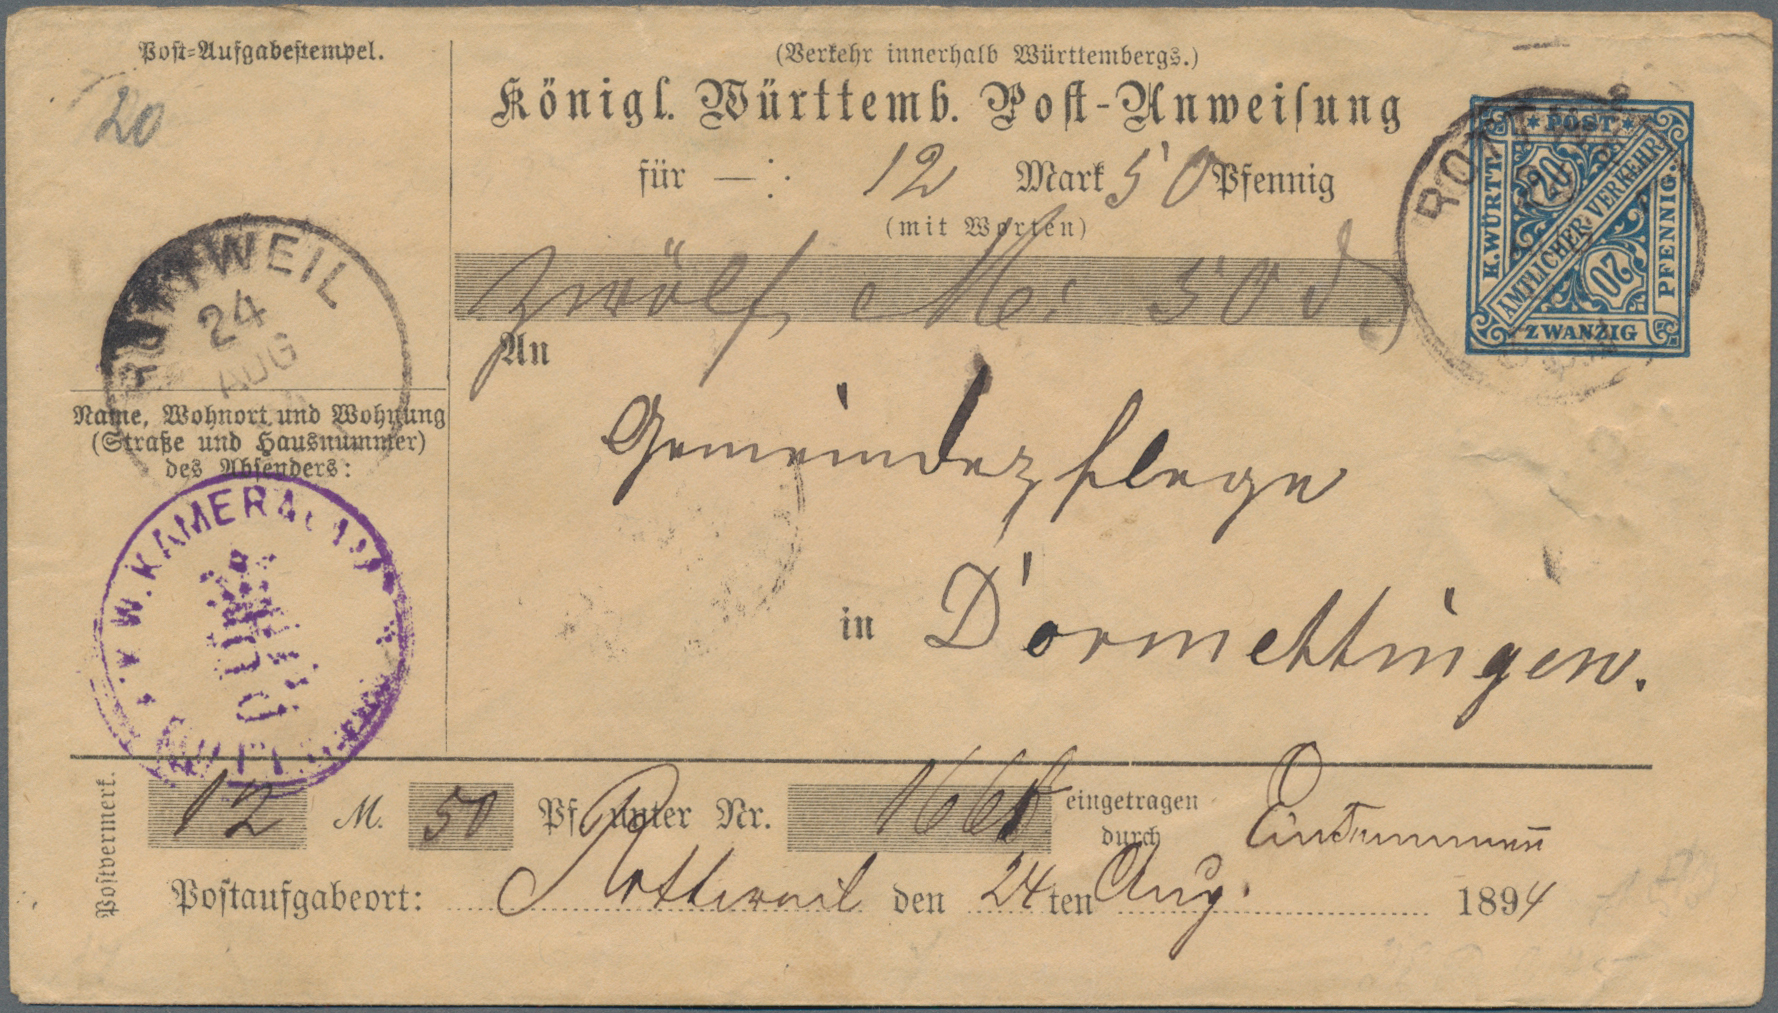 Post-Aufgabestempel.
20
(Verkehr innerhalb Württembergs.)
Königl. Württemb. Post-Anweisung
für — : 12 Mark 50 Pfennig
(mit Worten)
zwölf M: 50 d
An
Gemeindepflege
in Dörmettingen.
ROTTWEIL
24
AUG
Name, Wohnort und Wohnung
(Straße und Hausnummer)
des Absenders:
K. W. KAMERALAMT
POST
K.WÜRTT.
20
AMTLICHER VERKEHR
20
PFENNIG.
ZWANZIG
Postvermerk.
12 M. 50 Pf. unter Nr. 1668 eingetragen
durch
Postaufgabeort: Rottweil den 24ten Aug. 1894